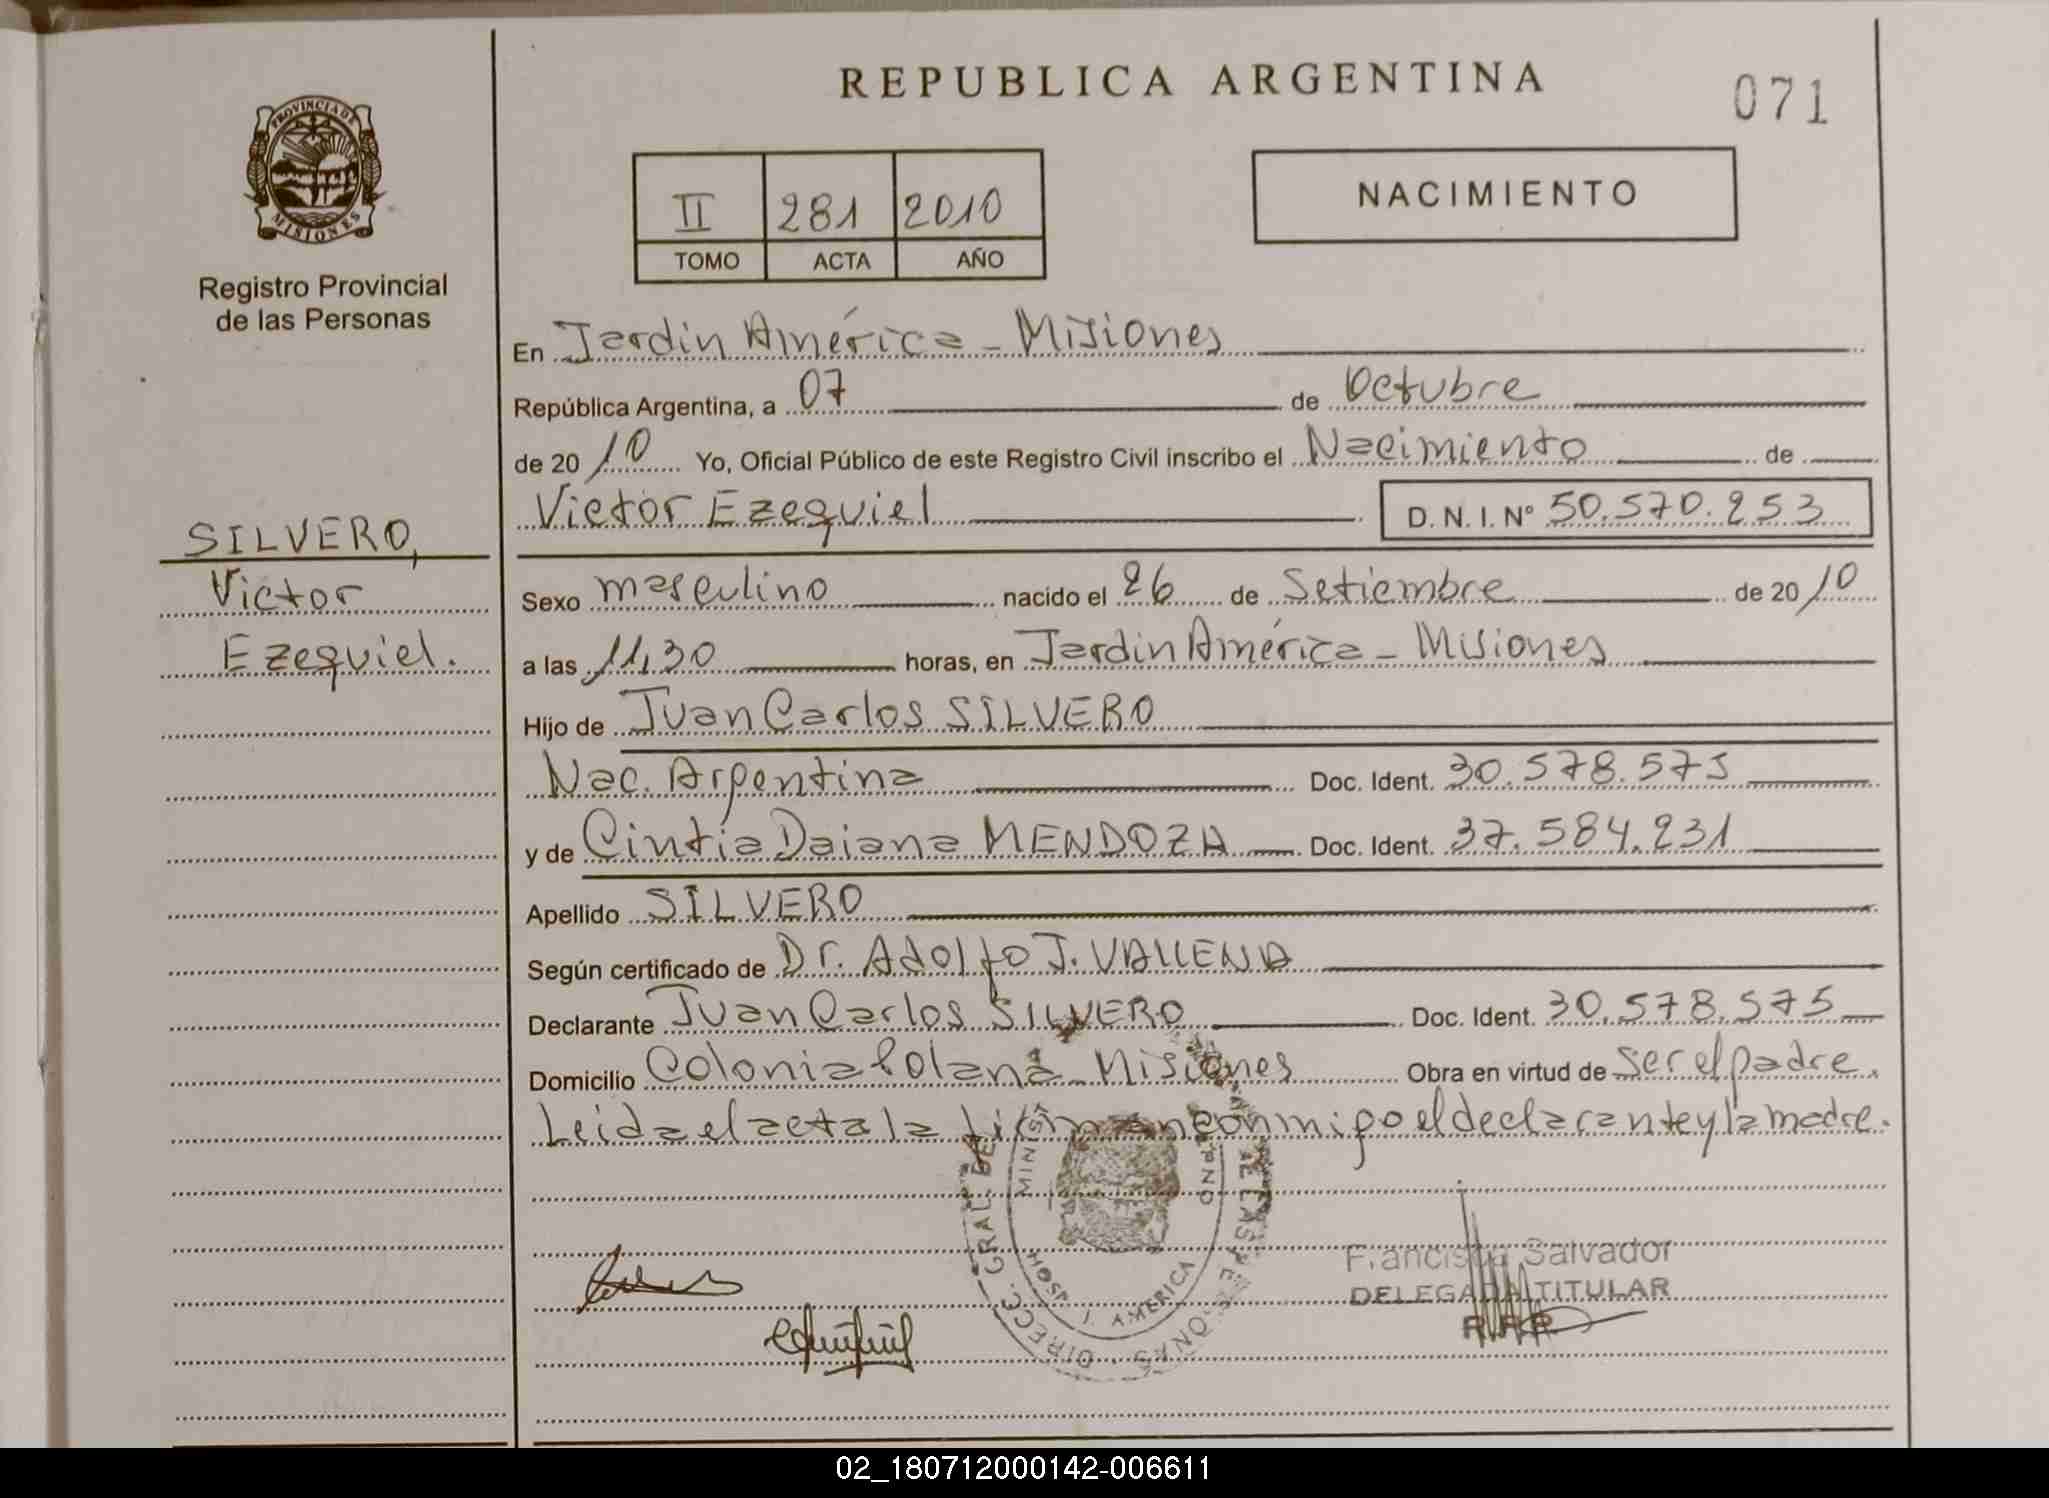 REPUBLICA ARGENTINA
071
PROVINCIA DE
MISIONES
Registro Provincial
de las Personas
II 281 2010
TOMO ACTA AÑO
NACIMIENTO
En Jardín América - Misiones
República Argentina, a 07 de Octubre
de 20 10 Yo, Oficial Público de este Registro Civil inscribo el Nacimiento de
Victor Ezequiel D. N. I. Nº 50.570.253
SILVERO,
Victor
Ezequiel.
Sexo masculino nacido el 26 de Setiembre de 20 10
a las 11,30 horas, en Jardín América - Misiones
Hijo de Juan Carlos SILVERO
Nac. Argentina Doc. Ident. 30.578.575
y de Cintia Daiana MENDOZA Doc. Ident. 37.584.231
Apellido SILVERO
Según certificado de Dr. Adolfo J.
Declarante Juan Carlos SILVERO Doc. Ident. 30.578.575
Domicilio Colonia Polana - Misiones Obra en virtud de ser el padre.
Leida el acta la firman conmigo el declarante y la madre.
DIRECC. GRAL. DE LAS PERSONAS
HOSP. J. AMERICA
Francisca Salvador
DELEGADA TITULAR
R.P.P.
02_180712000142-006611